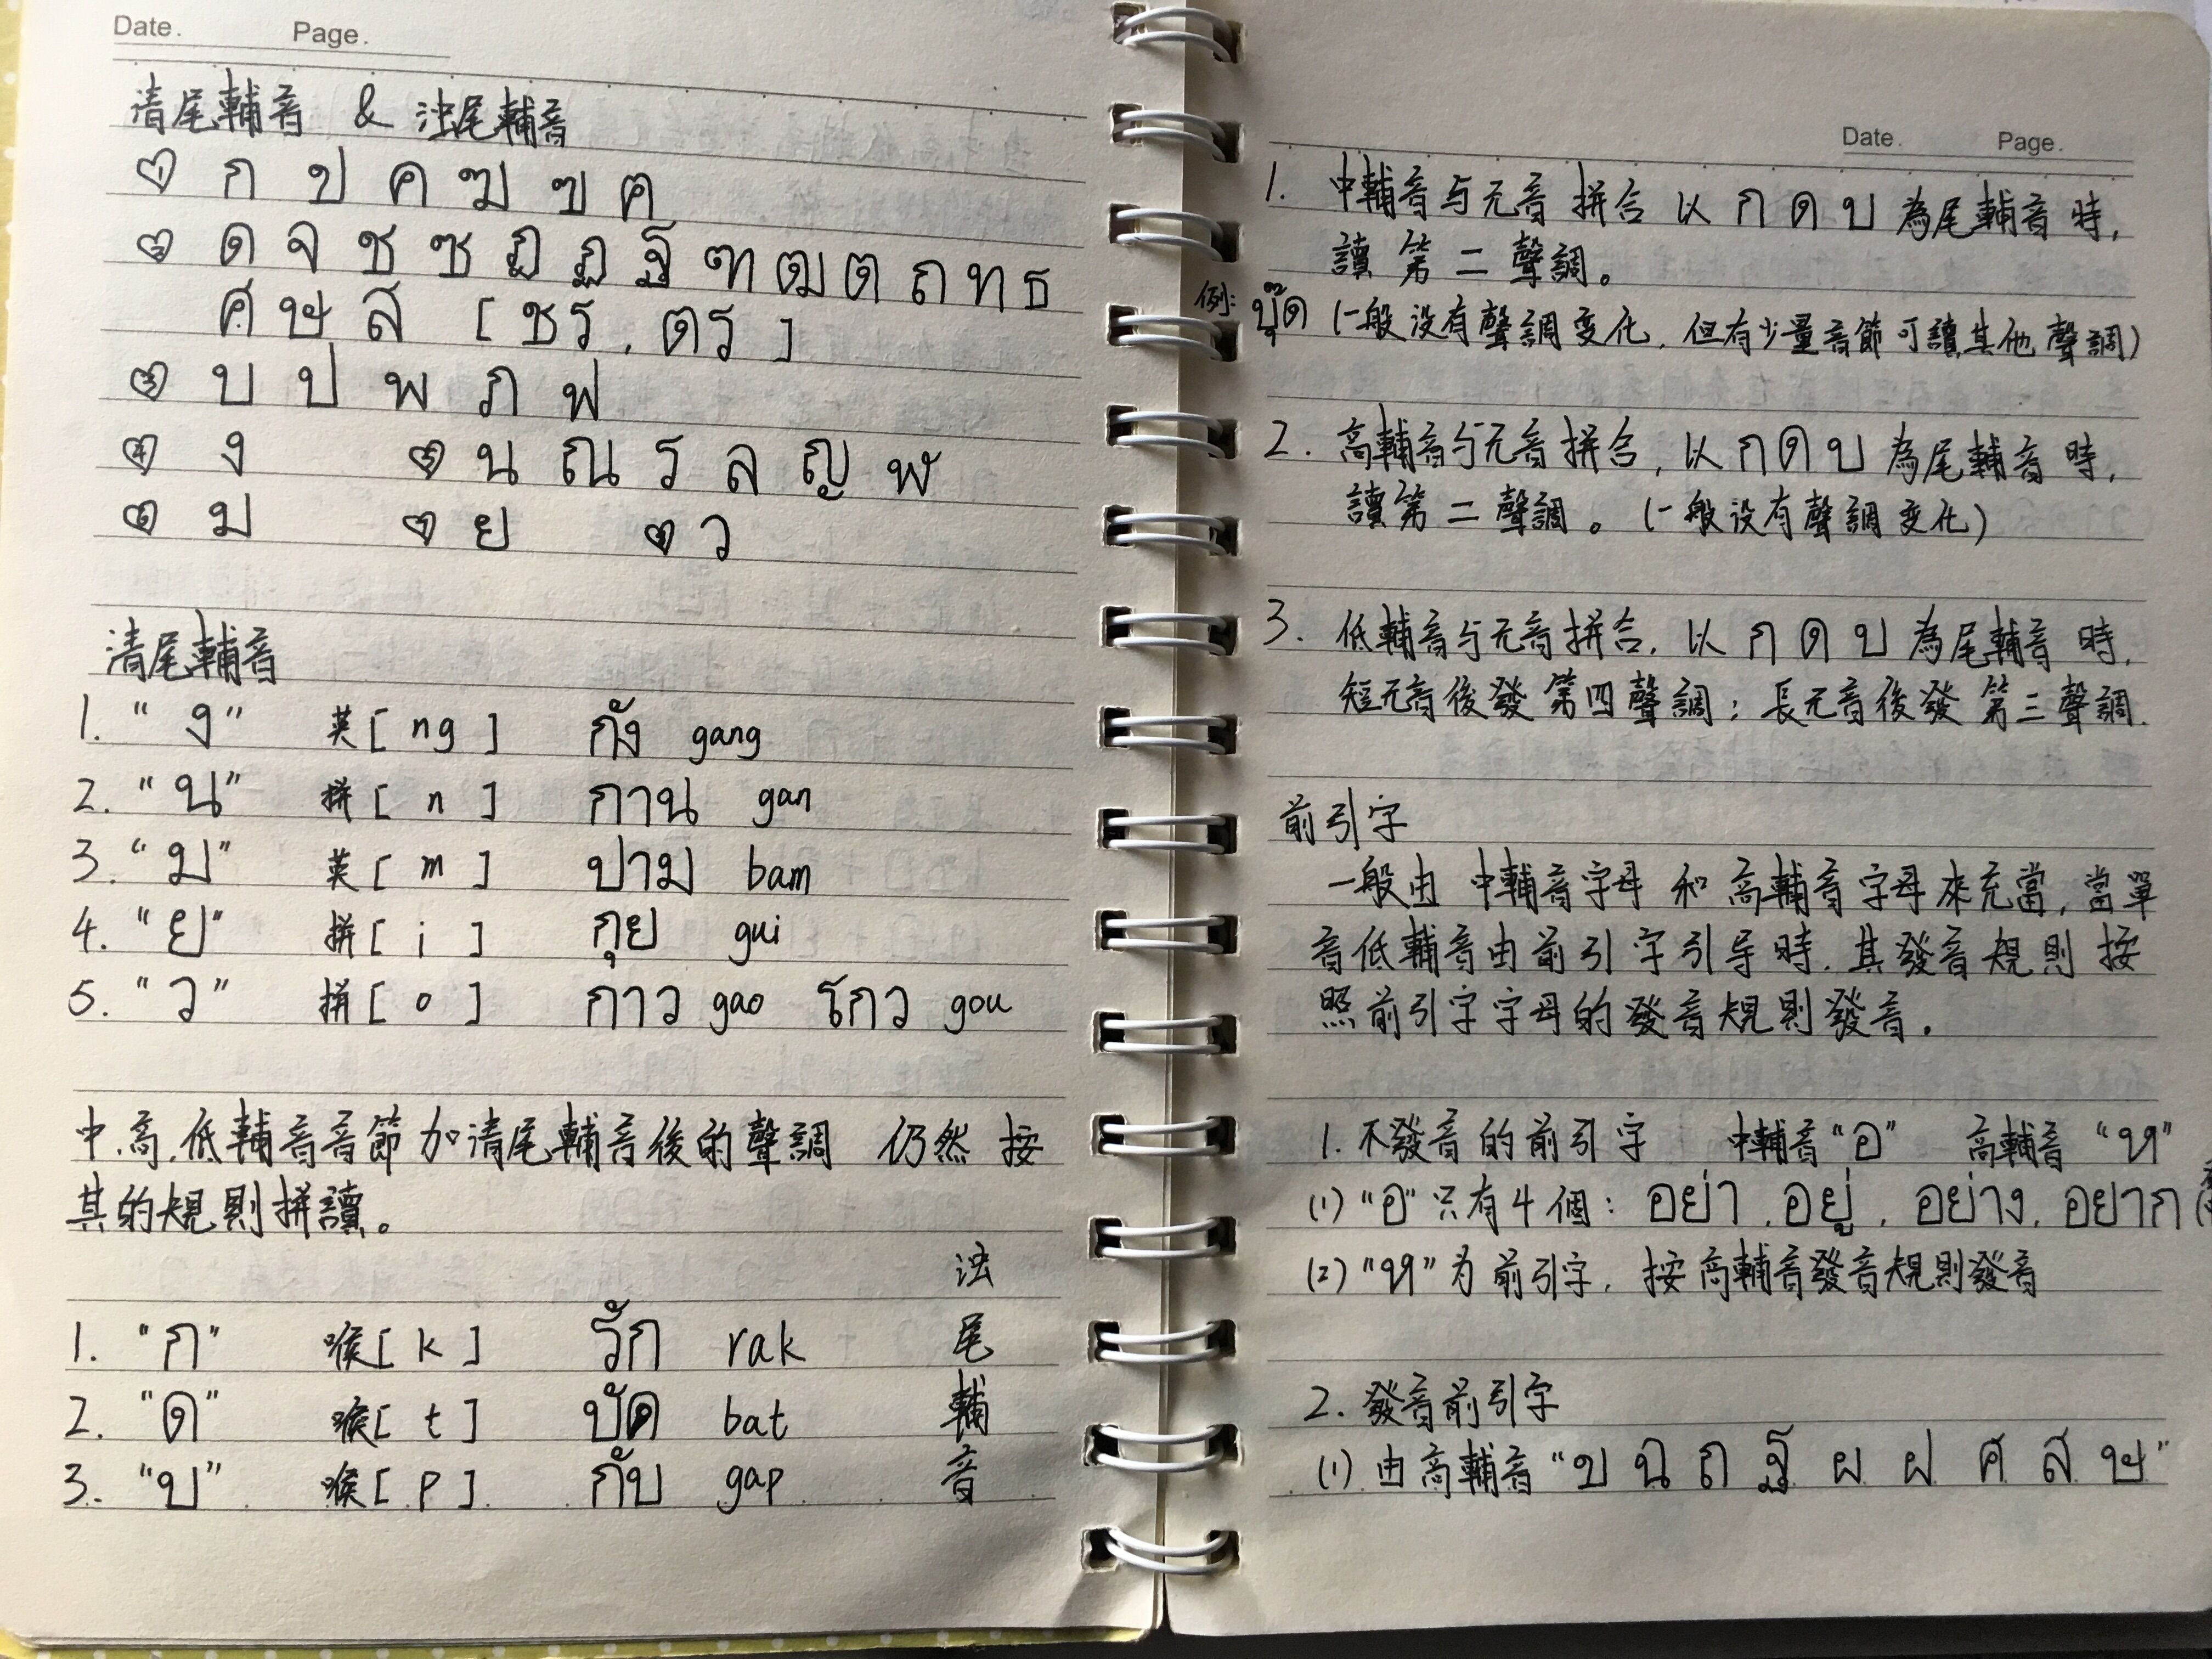 Date. Page.
清尾輔音 & 浊尾輔音
① ก ข ค ฆ ฃ ฅ
② ด จ ช ซ ฎ ฏ ฐ ฑ ฒ ต ถ ท ธ
ศ ษ ส [ ชร , ตร ]
③ บ ป พ ภ ฟ
④ ง ⑤ น ณ ร ล ญ ฬ
⑥ ม ⑦ ย ⑧ ว
清尾輔音
1. "ง" 英[ ng ] กัง gang
2. "น" 拼[ n ] กาน gan
3. "ม" 英[ m ] ปาม bam
4. "ย" 拼[ i ] กุย gui
5. "ว" 拼[ o ] กาว gao โกว gou
中.高.低輔音音節加清尾輔音後的聲調 仍然 按
其的規則拼讀。
浊尾輔音
1. "ก" 喉[ k ] รัก rak
2. "ด" 喉[ t ] บัด bat
3. "บ" 喉[ p ] กับ gap
Date. Page.
1. 中輔音与元音 拼合 以 ก ด บ 為尾輔音時,
讀 第 二 聲調。
例: (一般没有聲調变化, 但有少量音節可讀其他聲調)
2. 高輔音与元音拼合, 以 ก ด บ 為尾輔音時,
讀第二聲調。(一般没有聲調变化)
3. 低輔音与元音拼合, 以 ก ด บ 為尾輔音 時,
短元音後發 第四聲調; 長元音後發 第三聲調.
前引字
一般由 中輔音字母 和 高輔音字母來充當, 當單
音低輔音由前引字引导時, 其發音規則 按
照前引字字母的發音規則發音.
1. 不發音的前引字 中輔音"อ" 高輔音 "ห"
(1) "อ" 只有4個: อย่า , อยู่ , อย่าง, อยาก
(2) "ห" 为前引字, 按高輔音發音規則發音
2. 發音前引字
(1) 由高輔音 "ข ฉ ถ ฐ ผ ฝ ศ ส ษ"